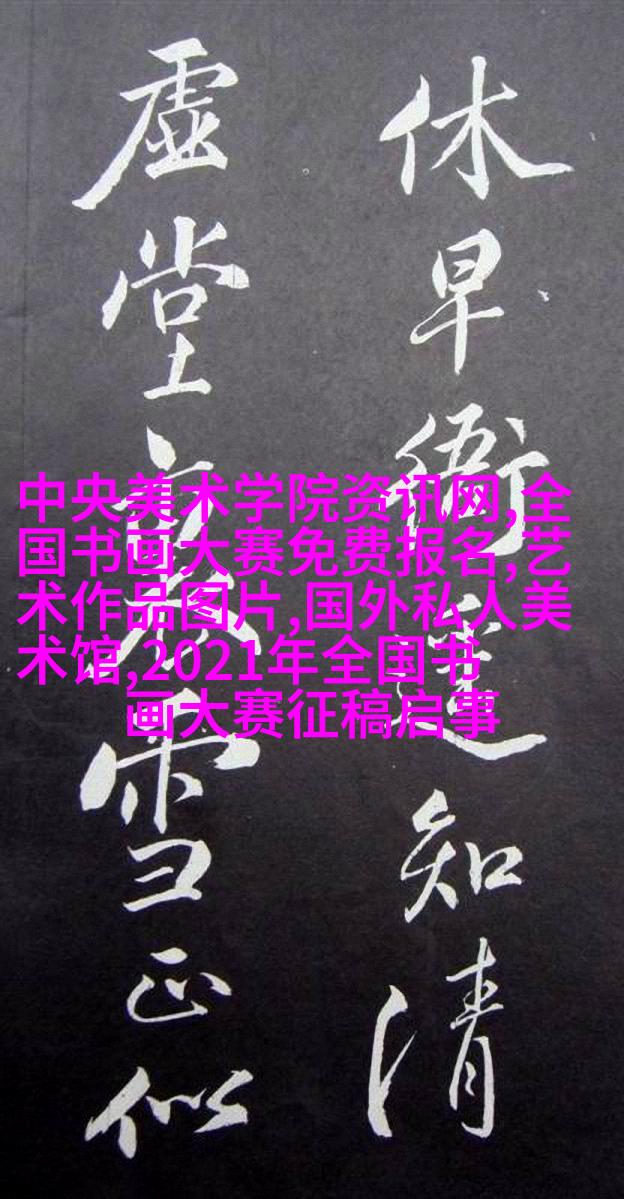 休早衙遥知清
虚堂裏雪正似
中央美术学院资讯网,全
国书画大赛免费报名,艺
术作品图片,国外私人美
术馆,2021年全国书
画大赛征稿启事